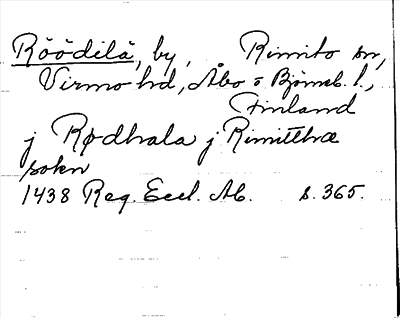 Röödilä, by, Rimito sn,
Virmo hd, Åbo o Bjőrneb. l.,
Finland
j Rødhala j Rimitthæ
sokn
1438 Reg. Eccl. Ab. s. 365.